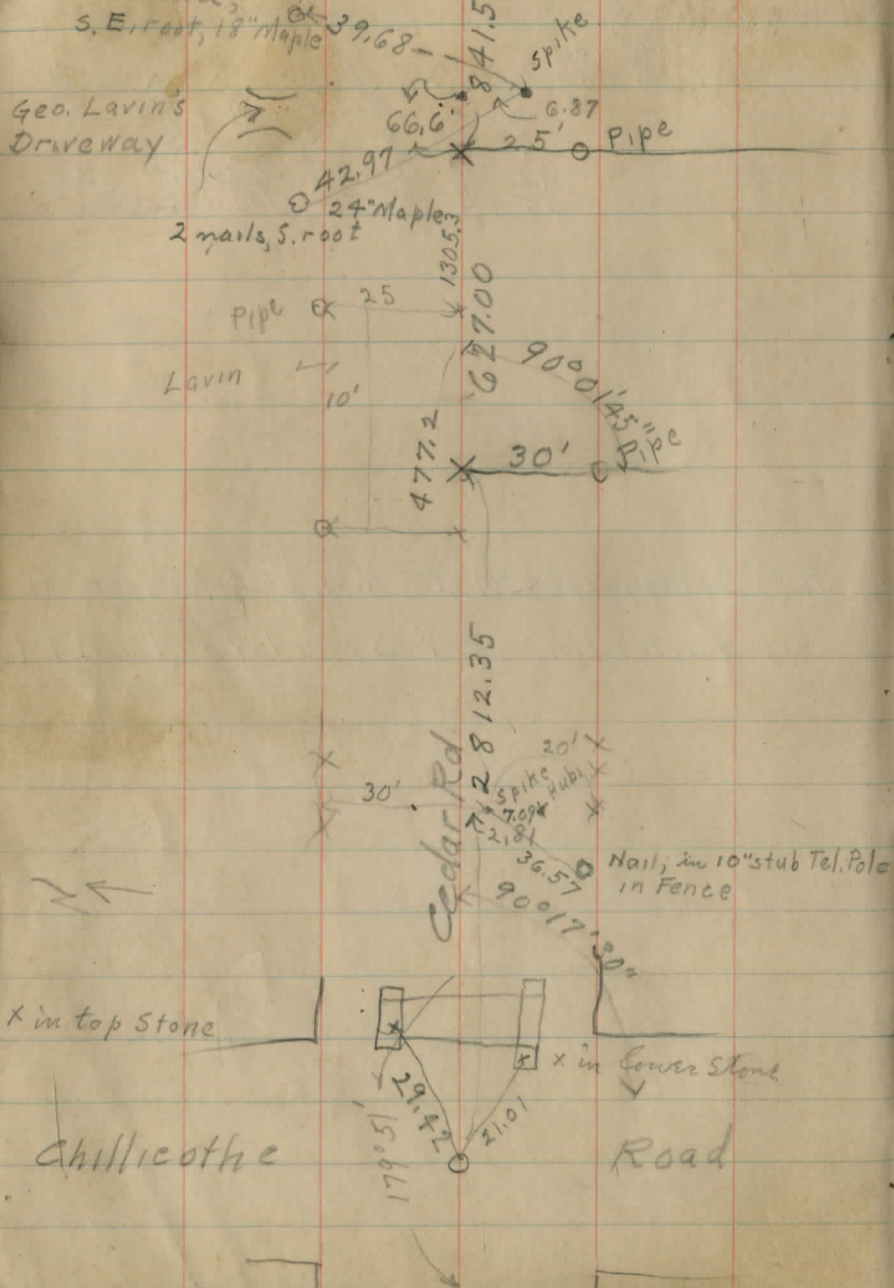 S.E. root, 18" Maple
39.68
841.5
Spike
Geo. Lavin's
Driveway
66.6'
6.87
25'
Pipe
42.97
24" Maple
2 nails, S. root
1305.3
627.00
Pipe
25
90° 01' 45"
Lavin
10'
477.2
30'
Pipe
2812.35
Cedar Rd
20'
30'
Spike
Hubs
7.09
2.81
36.57
Nail, in 10" stub Tel. Pole
in Fence
N
90° 17' 30"
X in top Stone
X in lower Stone
29.42
21.01
179° 51'
Chillicothe Road